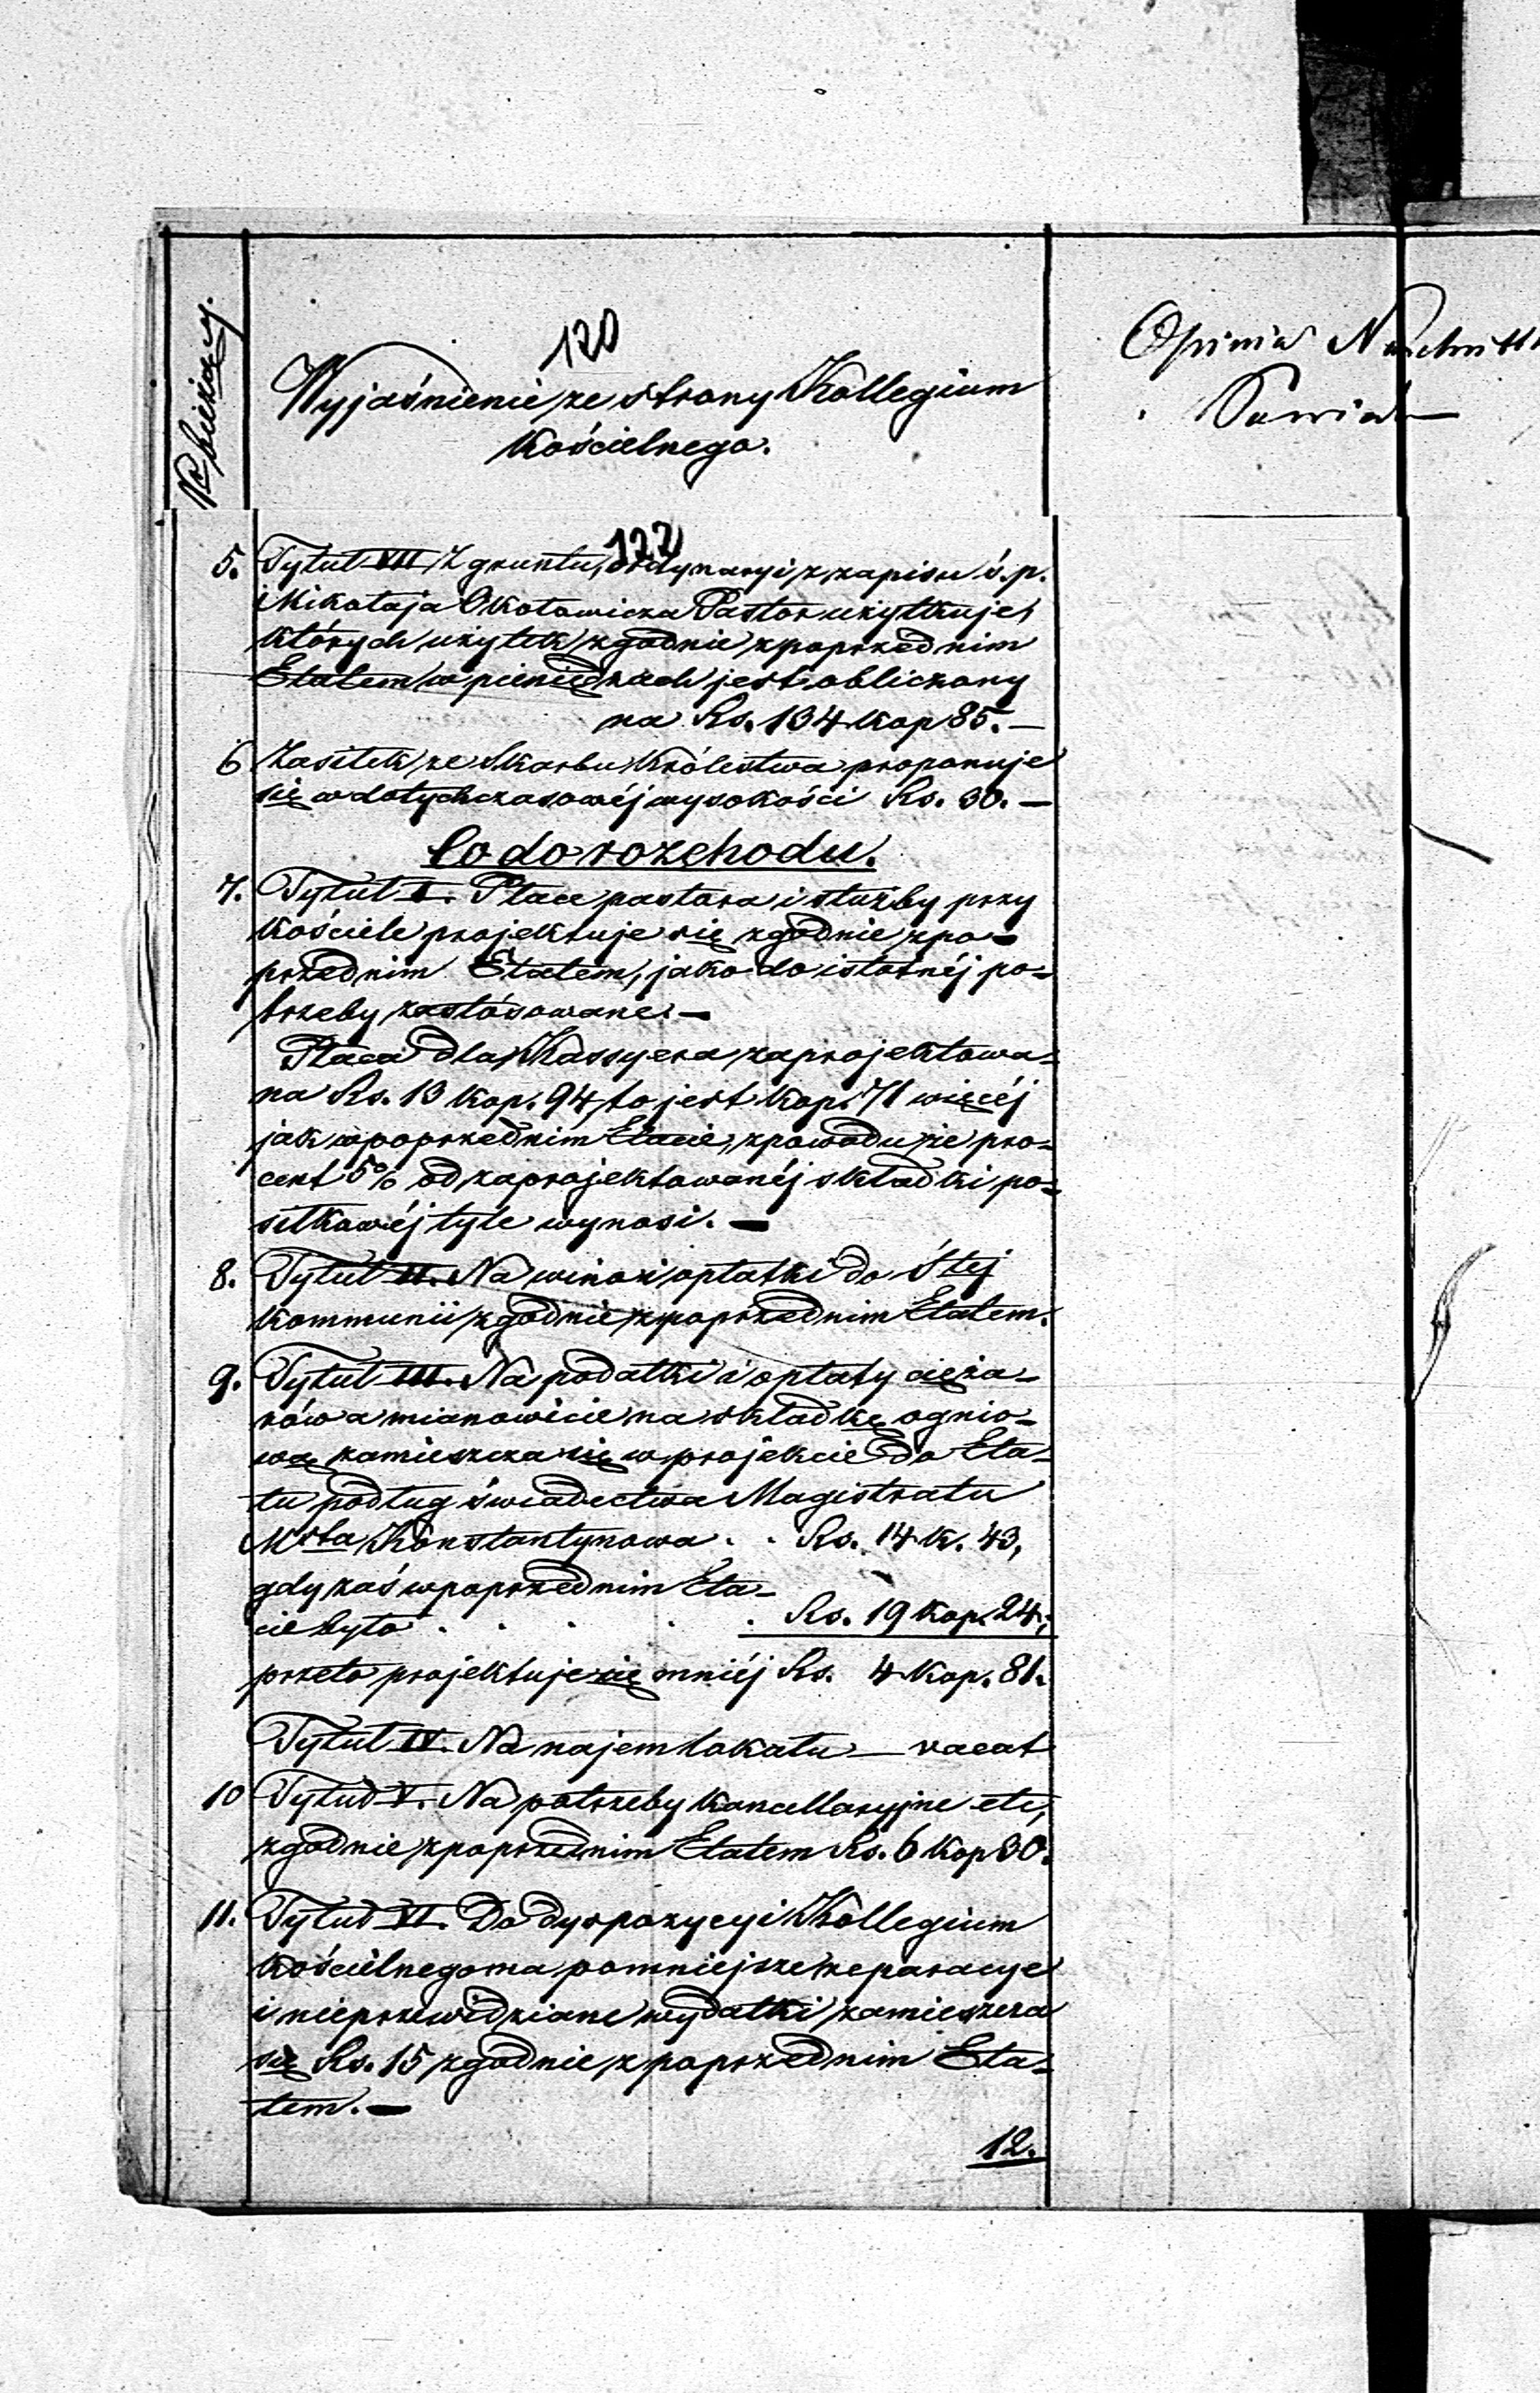 120
№ bieżący.
Wyjaśnienie ze strony Kollegium
kościelnego.
Opinia Naczelnik
Powiat
122
5. Tytuł VII Z gruntu, ordynaryi z zapisu ś.p.
Mikołaja Okołowicza Pastor użytkuje,
których użytek zgodnie z poprzednim
Etatem w pieniędzach jest obliczony
na Rs. 134 kop 85.—
6 Zasiłek ze Skarbu Królestwa proponuje
się w dotychczasowéj wysokości Rs. 30.—
Co do rozchodu.
7. Tytuł I. Płace pastora i służby przy
kościele projektuje się zgodnie z po-
przednim Etatem, jako do istotnéj po-
trzeby zastósowane.—
Płaca dla Kassyera zaprojektowa-
na Rs. 13 kop. 94, to jest kop. 71 więcéj
jak w poprzednim Etacie, z powodu że pro-
cent 5% od zaprojektowanéj składki po-
siłkowéj tyle wynosi.—
8. Tytuł II. Na wino i opłatki do Śtej
kommunii zgodnie z poprzednim Etatem.
9. Tytuł III. Na podatki i opłaty cięża-
rów a mianowicie na składkę ognio-
wą zamieszcza się w projekcie do Eta-
tu podług świadectwa Magistratu
Msta Konstantynowa . . Rs. 14 k. 43,
gdy zaś w poprzednim Eta-
cie było . . . . . Rs. 19 kop. 24;
przeto projektuje się mniéj Rs. 4 kop. 81.
Tytuł IV. Na najem lokalu — vacat
10 Tytuł V. Na potrzeby kancellaryjne etc,
zgodnie z poprzednim Etatem Rs. 6 kop 30.
11. Tytuł VI. Do dyspozycyi Kollegium
kościelnego na pomniejsze reparacye
i nieprzewidziane wydatki zamieszcza
się Rs. 15 zgodnie z poprzednim Eta-
tem.—
12.